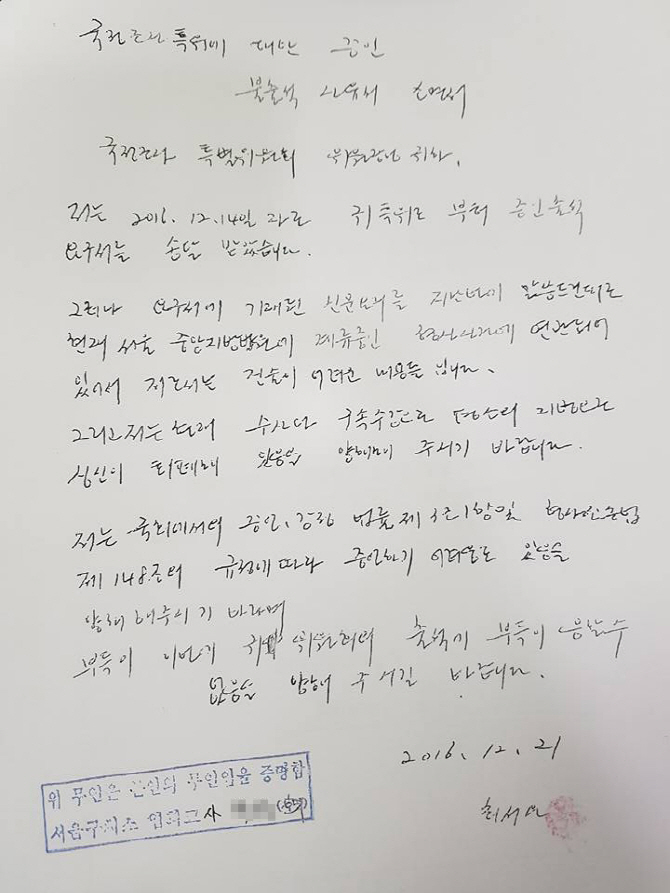 국정조사 특위에 대한 증인
불출석 사유서
국정조사 특별위원회 위원장님 귀하.
저는 2016. 12.14일 귀 특위로 부터 증인출석
요구서를 송달 받았습니다.
그러나 요구서에 기재된 신문요지를 지난번에 말씀드린대로
현재 서울 중앙지방법원에 계류중인 형사사건에 연관되어
있어서 저로서는 진술이 어려운 내용들 입니다.
그리고 저는 현재 수사와 구속수감으로 평소의 지병으로
심신이 피폐해 있음을 양해해 주시기 바랍니다.
저는 국회에서의 증언, 감정 법률 제 3조1항및 형사소송법
제 148조의 규정에 따라 증언하기 어려움도 있음을
양해 해주시기 바라며
부득이 이번에 귀 위원회의 출석에 부득이 응할수
없음을 양해 주시길 바랍니다.
2016. 12. 21
최서원
위 무인은 본인의 무인임을 증명함
서울구치소